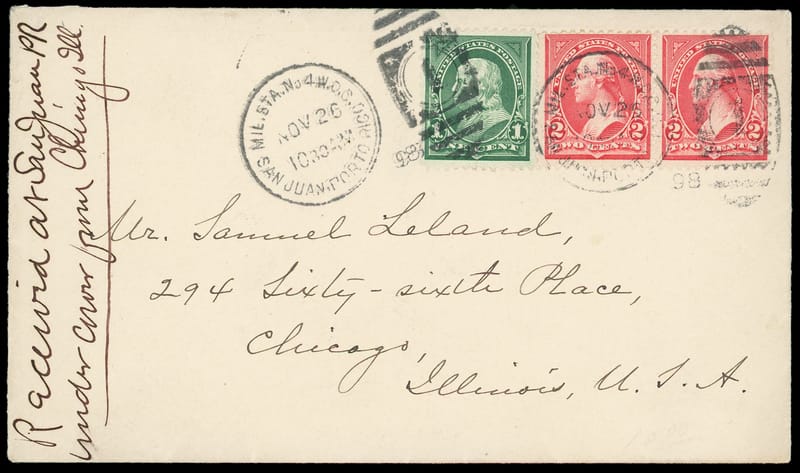 Racewid at San Juan PR
under cover from Chicago Ill.
MIL. STA. No 4 W.D.C. SAN JUAN. PORTO RICO
NOV 26
1030 AM
98
UNITED STATES POSTAGE
1 1
ONE CENT
UNITED STATES POSTAGE
2 2
TWO CENTS
UNITED STATES POSTAGE
2 2
TWO CENTS
MIL. STA. No 4
NOV 26
JUAN. PORT
98
Mr. Samuel Leland,
294 Sixty-sixth Place,
Chicago,
Illinois, U. S. A.